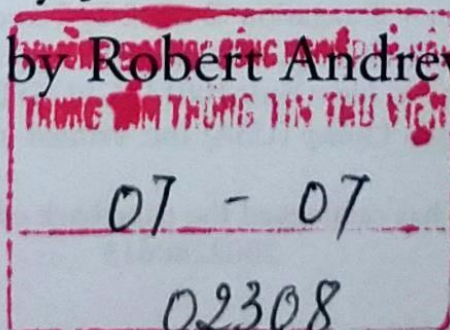 by Robert Andrew
TRUNG TÂM THÔNG TIN THƯ VIỆN
07 - 07
02308